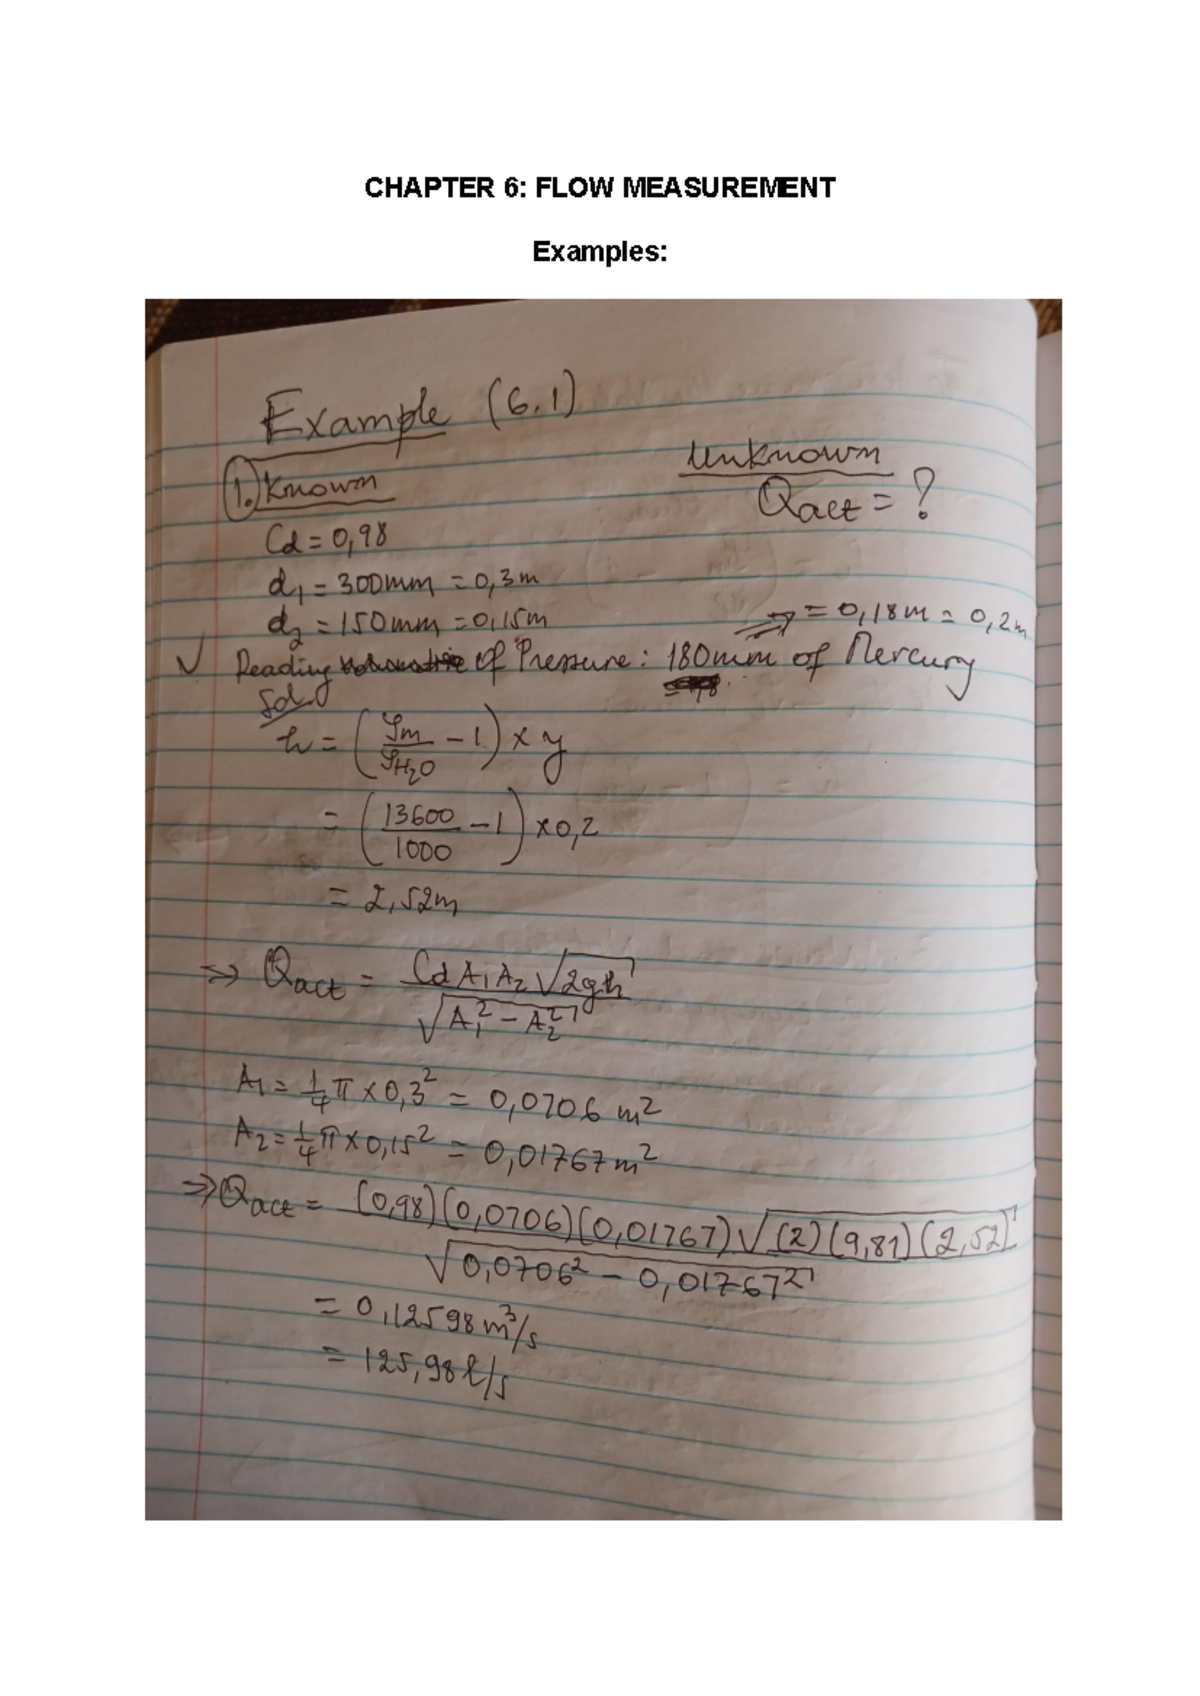 CHAPTER 6: FLOW MEASUREMENT
Examples:
Example (6.1)
1. Known
Unknown
Cd = 0,98
Qact = ?
d1 = 300mm = 0,3m
d2 = 150mm = 0,15m
=> = 0,18m = 0,2m
✓ Reading of Pressure: 180mm of Mercury
Sol
h = (ρm/ρH2O - 1) × y
= (13600/1000 - 1) × 0,2
= 2,52m
=> Qact = Cd A1 A2 √2gh / √A1² - A2²
A1 = 1/4 π × 0,3² = 0,0706 m²
A2 = 1/4 π × 0,15² = 0,01767 m²
=> Qact = (0,98)(0,0706)(0,01767)√(2)(9,81)(2,52) / √0,0706² - 0,01767²
= 0,12598 m³/s
= 125,98 l/s